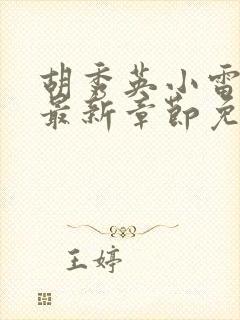 胡秀英小雷
最新章节免
王婷